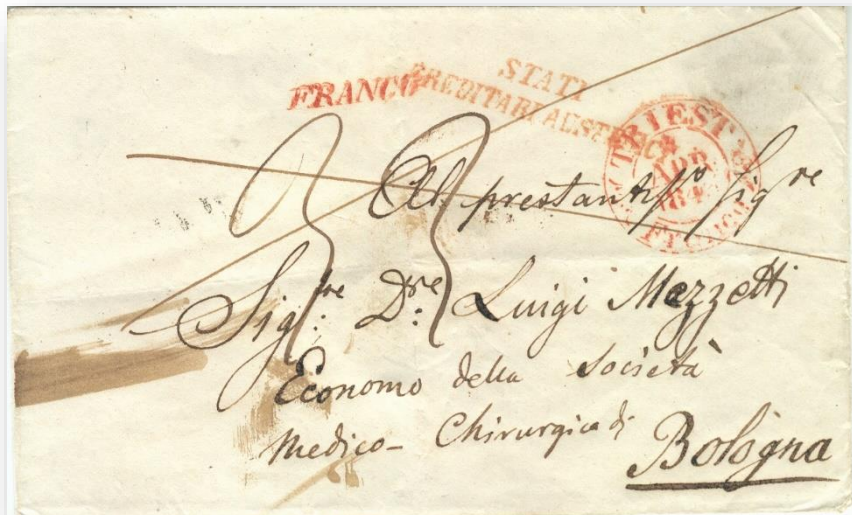 FRANCO
STATI
EREDITARI AUSTRIACI
TRIESTE
APR
FRANCO
Al prestantmo Sigre
Sigre: Dre: Luigi Mezzetti
Economo della Società
Medico-Chirurgica di
Bologna